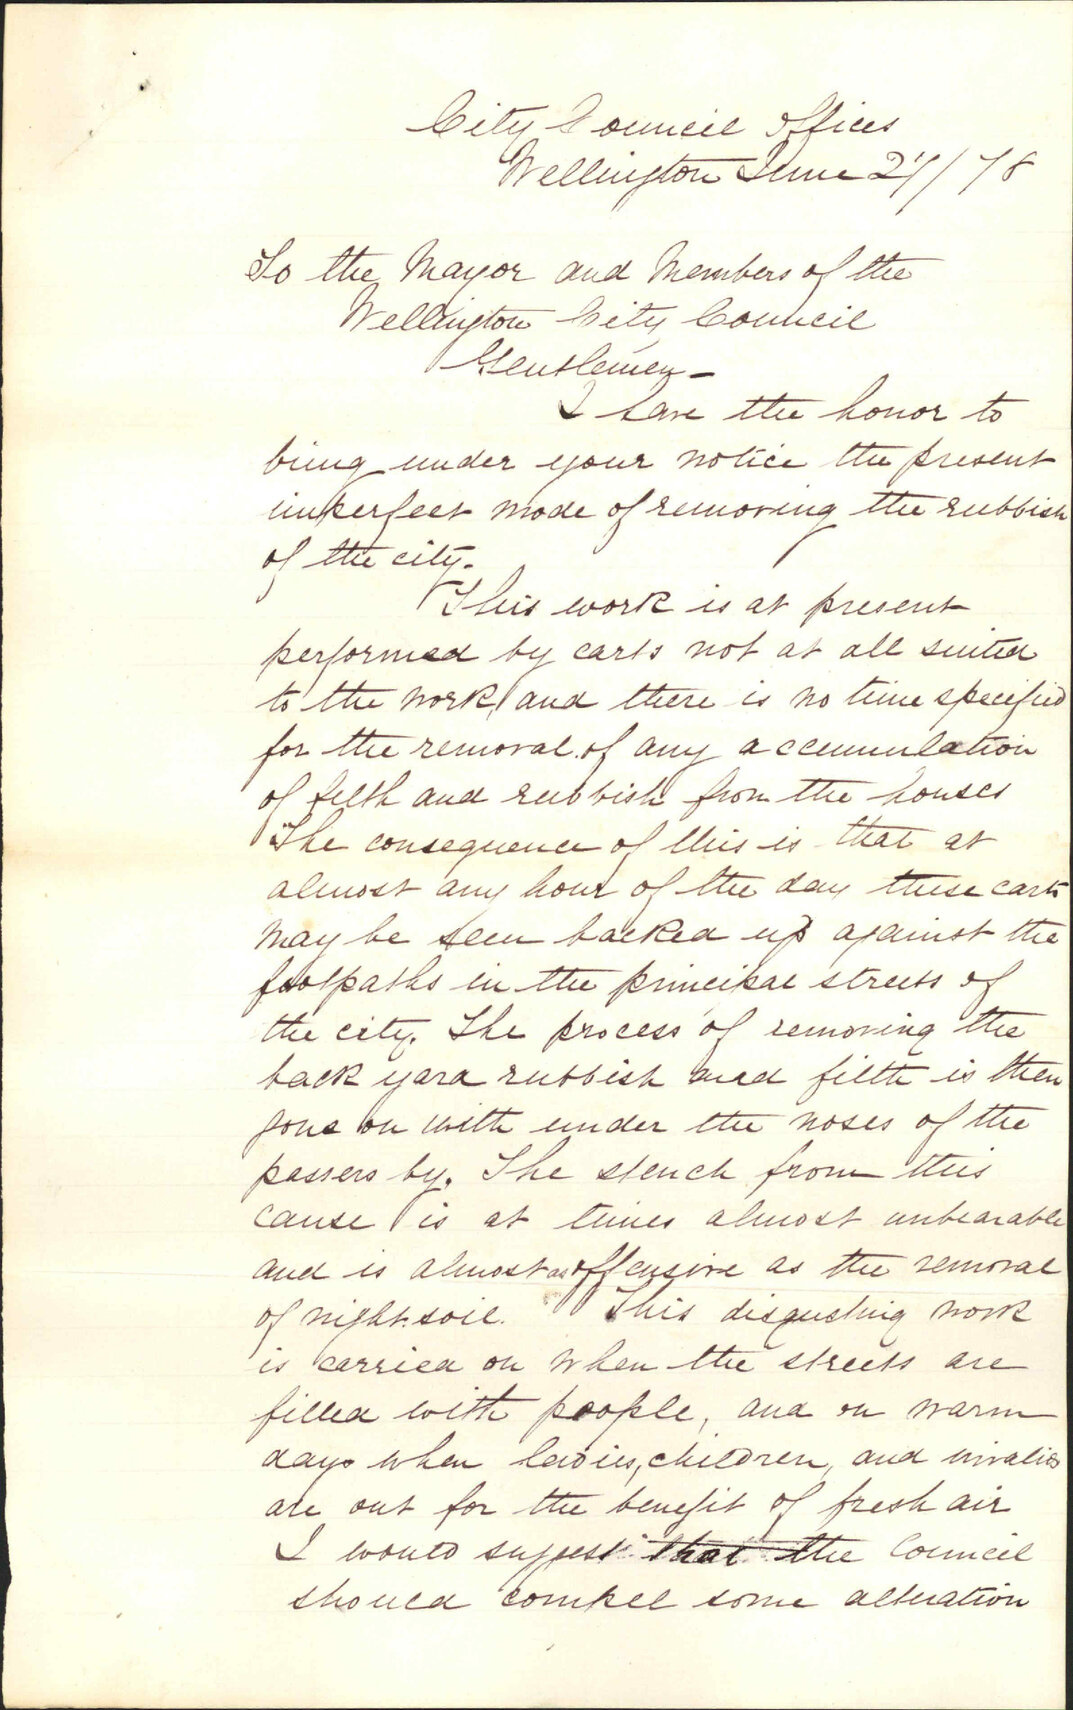 City Council Offices
Wellington June 27/78
To the Mayor and Members of the
Wellington City Council
Gentlemen -
I have the honor to
bring under your notice the present
imperfect mode of removing the rubbish
of the city.
This work is at present
performed by carts not at all suited
to the work, and there is no time specified
for the removal of any accumulation
of filth and rubbish from the houses
The consequence of this is that at
almost any hour of the day these carts
may be seen backed up against the
footpaths in the principal streets of
the city. The process of removing the
back yard rubbish and filth is then
gone on with under the noses of the
passers by. The stench from this
cause is at times almost unbearable
and is almost as offensive as the removal
of night soil. This disgusting work
is carried on when the streets are
filled with people, and on warm
days when ladies, children, and invalids
are out for the benefit of fresh air
I would suggest that the Council
should compel some alteration